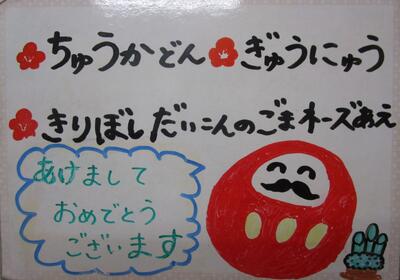 ちゅうかどん ぎゅうにゅう
きりぼしだいこんのごまネーズあえ
あけまして
おめでとう
ございます